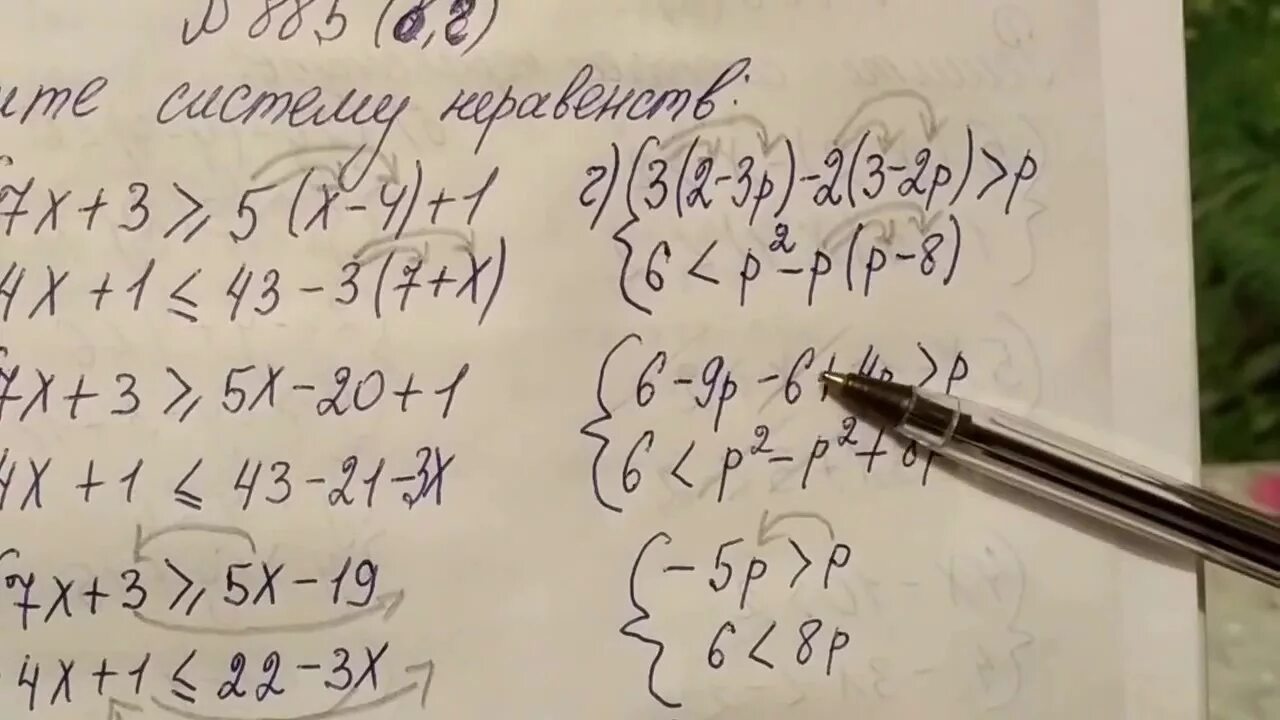 № 885 (б,г)
ите систему неравенств:
7x + 3 ⩾ 5 (x - 4) + 1
4x + 1 ⩽ 43 - 3(7 + x)
7x + 3 ⩾ 5x - 20 + 1
4x + 1 ⩽ 43 - 21 - 3x
7x + 3 ⩾ 5x - 19
4x + 1 ⩽ 22 - 3x
г) { 3(2 - 3p) - 2(3 - 2p) > p
6 < p² - p(p - 8)
{ 6 - 9p - 6 + 4p > p
6 < p² - p² + 8p
{ - 5p > p
6 < 8p